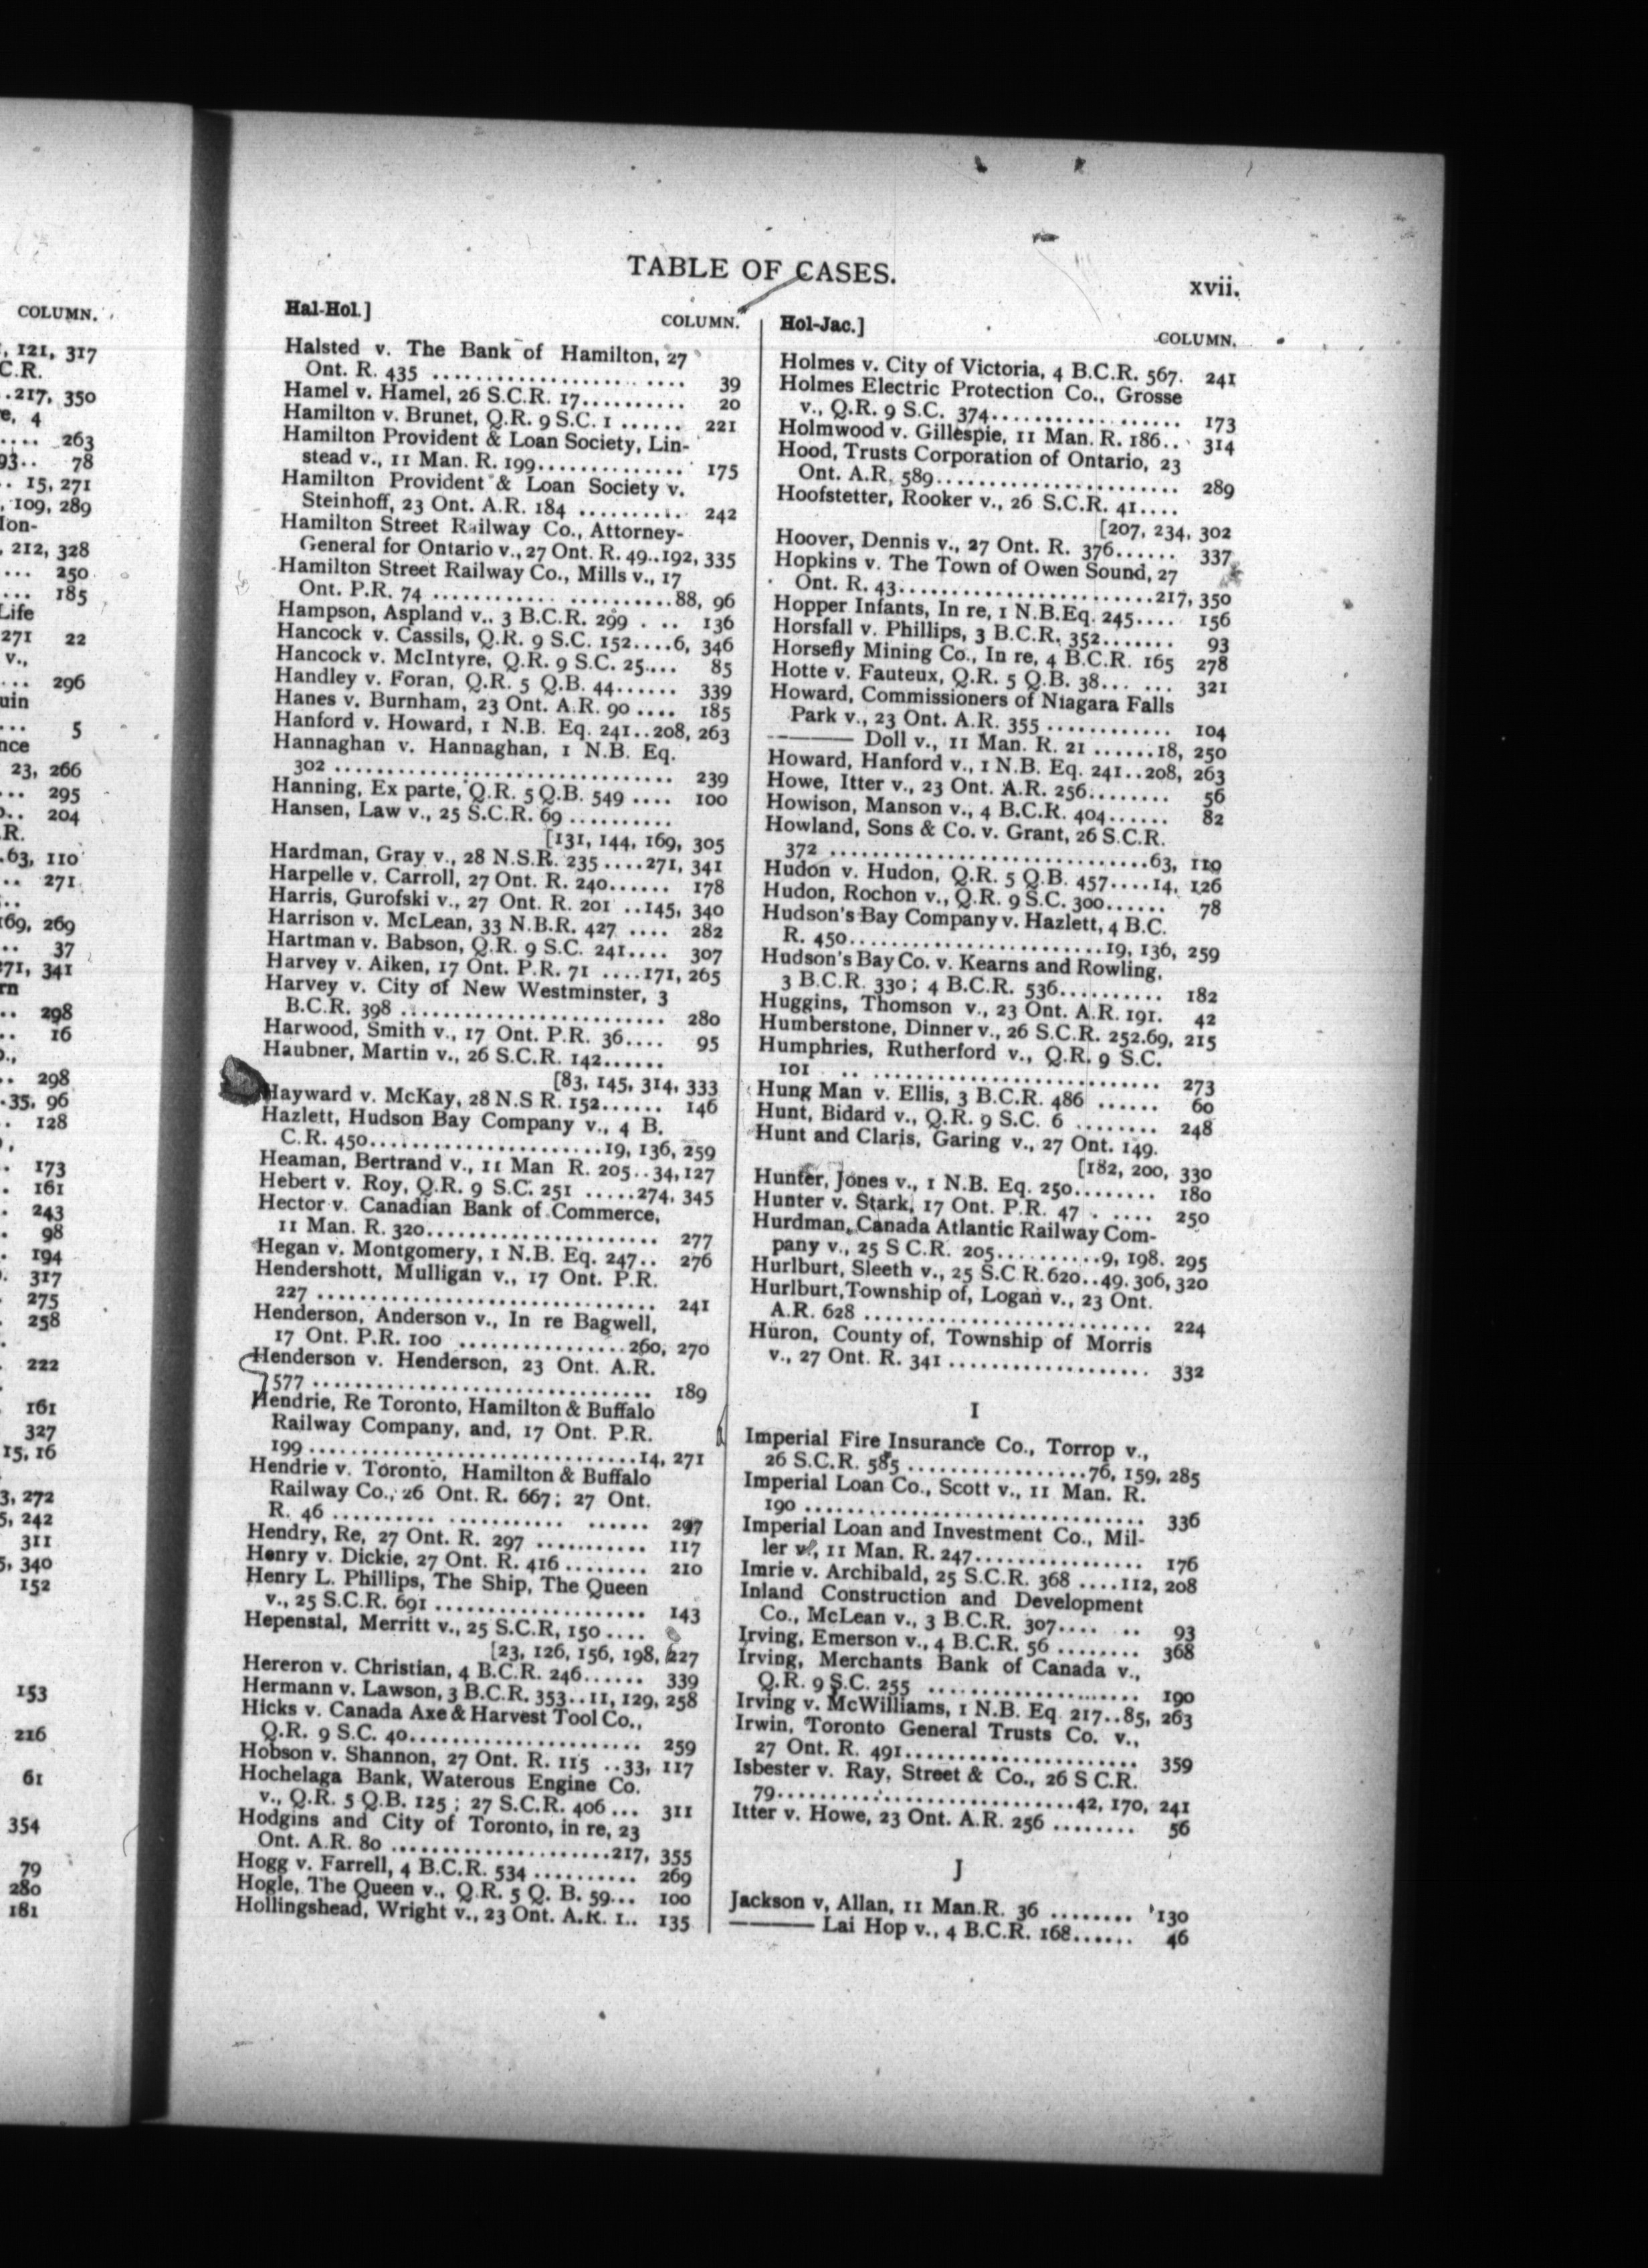 COLUMN.
, 121, 317
C.R.
..217, 350
e, 4
.... 263
93.. 78
.. 15, 271
, 109, 289
, 212, 328
... 250
... 185
Life
271 22
v.,
... 296
uin
... 5
nce
23, 266
... 295
.. 204
.R.
.63, 110
.. 271
169, 269
.. 37
271, 341
rn
.. 298
.. 16
.. 298
.35, 96
.. 128
.. 173
. 161
. 243
. 98
. 194
. 317
275
. 258
. 222
. 161
327
15, 16
3, 272
5, 242
311
5, 340
152
153
216
61
354
79
280
181
TABLE OF CASES.
xvii.
Hal-Hol.]
COLUMN.
Halsted v. The Bank of Hamilton, 27
Ont. R. 435 .................... .... 39
Hamel v. Hamel, 26 S.C.R. 17.......... 20
Hamilton v. Brunet, Q.R. 9 S.C. 1 ...... 221
Hamilton Provident & Loan Society, Lin-
stead v., 11 Man. R. 199.............. 175
Hamilton Provident & Loan Society v.
Steinhoff, 23 Ont. A.R. 184 .......... 242
Hamilton Street Railway Co., Attorney-
General for Ontario v., 27 Ont. R. 49..192, 335
Hamilton Street Railway Co., Mills v., 17
Ont. P.R. 74 ............ ..........88, 96
Hampson, Aspland v., 3 B.C.R. 299 . .. 136
Hancock v. Cassils, Q.R. 9 S.C. 152....6, 346
Hancock v. McIntyre, Q.R. 9 S.C. 25.... 85
Handley v. Foran, Q.R. 5 Q.B. 44...... 339
Hanes v. Burnham, 23 Ont. A.R. 90 .... 185
Hanford v. Howard, 1 N.B. Eq. 241..208, 263
Hannaghan v. Hannaghan, 1 N.B. Eq.
302 ................................ 239
Hanning, Ex parte, Q.R. 5 Q.B. 549 .... 100
Hansen, Law v., 25 S.C.R. 69 ..........
[131, 144, 169, 305
Hardman, Gray v., 28 N.S.R. 235 ....271, 341
Harpelle v. Carroll, 27 Ont. R. 240...... 178
Harris, Gurofski v., 27 Ont. R. 201 ..145, 340
Harrison v. McLean, 33 N.B.R. 427 .... 282
Hartman v. Babson, Q.R. 9 S.C. 241.... 307
Harvey v. Aiken, 17 Ont. P.R. 71 ....171, 265
Harvey v. City of New Westminster, 3
B.C.R. 398 ......................... 280
Harwood, Smith v., 17 Ont. P.R. 36.... 95
Haubner, Martin v., 26 S.C.R. 142......
[83, 145, 314, 333
Hayward v. McKay, 28 N.S R. 152...... 146
Hazlett, Hudson Bay Company v., 4 B.
C.R. 450......................19, 136, 259
Heaman, Bertrand v., 11 Man R. 205..34, 127
Hebert v. Roy, Q.R. 9 S.C. 251 .....274, 345
Hector v. Canadian Bank of Commerce,
11 Man. R. 320...................... 277
Hegan v. Montgomery, 1 N.B. Eq. 247.. 276
Hendershott, Mulligan v., 17 Ont. P.R.
227 ................................ 241
Henderson, Anderson v., In re Bagwell,
17 Ont. P.R. 100 ................260, 270
Henderson v. Henderson, 23 Ont. A.R.
577 ................................ 189
Hendrie, Re Toronto, Hamilton & Buffalo
Railway Company, and, 17 Ont. P.R.
199 ...............................14, 271
Hendrie v. Toronto, Hamilton & Buffalo
Railway Co., 26 Ont. R. 667; 27 Ont.
R. 46 .......... ........... ...... 297
Hendry, Re, 27 Ont. R. 297 ........... 117
Henry v. Dickie, 27 Ont. R. 416 ........ 210
Henry L. Phillips, The Ship, The Queen
v., 25 S.C.R. 691 .................... 143
Hepenstal, Merritt v., 25 S.C.R, 150 ....
[23, 126, 156, 198, 227
Hereron v. Christian, 4 B.C.R. 246...... 339
Hermann v. Lawson, 3 B.C.R. 353..11, 129, 258
Hicks v. Canada Axe & Harvest Tool Co.,
Q.R. 9 S.C. 40...................... 259
Hobson v. Shannon, 27 Ont. R. 115 ..33, 117
Hochelaga Bank, Waterous Engine Co.
v., Q.R. 5 Q.B. 125 ; 27 S.C.R. 406 ... 311
Hodgins and City of Toronto, in re, 23
Ont. A.R. 80 .....................217, 355
Hogg v. Farrell, 4 B.C.R. 534 .......... 269
Hogle, The Queen v., Q.R. 5 Q. B. 59... 100
Hollingshead, Wright v., 23 Ont. A.R. 1.. 135
Hol-Jac.]
COLUMN.
Holmes v. City of Victoria, 4 B.C.R. 567. 241
Holmes Electric Protection Co., Grosse
v., Q.R. 9 S.C. 374.................. 173
Holmwood v. Gillespie, 11 Man. R. 186.. 314
Hood, Trusts Corporation of Ontario, 23
Ont. A.R. 589....................... 289
Hoofstetter, Rooker v., 26 S.C.R. 41....
[207, 234, 302
Hoover, Dennis v., 27 Ont. R. 376...... 337
Hopkins v. The Town of Owen Sound, 27
Ont. R. 43........................217, 350
Hopper Infants, In re, 1 N.B.Eq. 245.... 156
Horsfall v. Phillips, 3 B.C.R. 352....... 93
Horsefly Mining Co., In re, 4 B.C.R. 165 278
Hotte v. Fauteux, Q.R. 5 Q.B. 38... ... 321
Howard, Commissioners of Niagara Falls
Park v., 23 Ont. A.R. 355 ............ 104
——— Doll v., 11 Man. R. 21 ......18, 250
Howard, Hanford v., 1 N.B. Eq. 241..208, 263
Howe, Itter v., 23 Ont. A.R. 256........ 56
Howison, Manson v., 4 B.C.R. 404...... 82
Howland, Sons & Co. v. Grant, 26 S.C.R.
372 ..............................63, 110
Hudon v. Hudon, Q.R. 5 Q.B. 457....14, 126
Hudon, Rochon v., Q.R. 9 S.C. 300...... 78
Hudson's Bay Company v. Hazlett, 4 B.C.
R. 450........................19, 136, 259
Hudson's Bay Co. v. Kearns and Rowling,
3 B.C.R. 330 ; 4 B.C.R. 536.......... 182
Huggins, Thomson v., 23 Ont. A.R. 191. 42
Humberstone, Dinner v., 26 S.C.R. 252.69, 215
Humphries, Rutherford v., Q.R. 9 S.C.
101 .. ........................... 273
Hung Man v. Ellis, 3 B.C.R. 486 ...... 60
Hunt, Bidard v., Q.R. 9 S.C. 6 ........ 248
Hunt and Claris, Garing v., 27 Ont. 149.
[182, 200, 330
Hunter, Jones v., 1 N.B. Eq. 250........ 180
Hunter v. Stark, 17 Ont. P.R. 47 . .... 250
Hurdman, Canada Atlantic Railway Com-
pany v., 25 S C.R. 205..........9, 198, 295
Hurlburt, Sleeth v., 25 S.C R. 620..49, 306, 320
Hurlburt, Township of, Logan v., 23 Ont.
A.R. 628 ........................... 224
Huron, County of, Township of Morris
v., 27 Ont. R. 341 ................... 332
I
Imperial Fire Insurance Co., Torrop v.,
26 S.C.R. 585 .................76, 159, 285
Imperial Loan Co., Scott v., 11 Man. R.
190 ................................ 336
Imperial Loan and Investment Co., Mil-
ler v., 11 Man. R. 247................ 176
Imrie v. Archibald, 25 S.C.R. 368 ....112, 208
Inland Construction and Development
Co., McLean v., 3 B.C.R. 307.... .. 93
Irving, Emerson v., 4 B.C.R. 56 ........ 368
Irving, Merchants Bank of Canada v.,
Q.R. 9 S.C. 255 .................... 190
Irving v. McWilliams, 1 N.B. Eq 217..85, 263
Irwin, Toronto General Trusts Co. v.,
27 Ont. R. 491...................... 359
Isbester v. Ray, Street & Co., 26 S C.R.
79.............................42, 170, 241
Itter v. Howe, 23 Ont. A.R. 256 ........ 56
J
Jackson v, Allan, 11 Man.R. 36 ........ 130
——— Lai Hop v., 4 B.C.R. 168...... 46